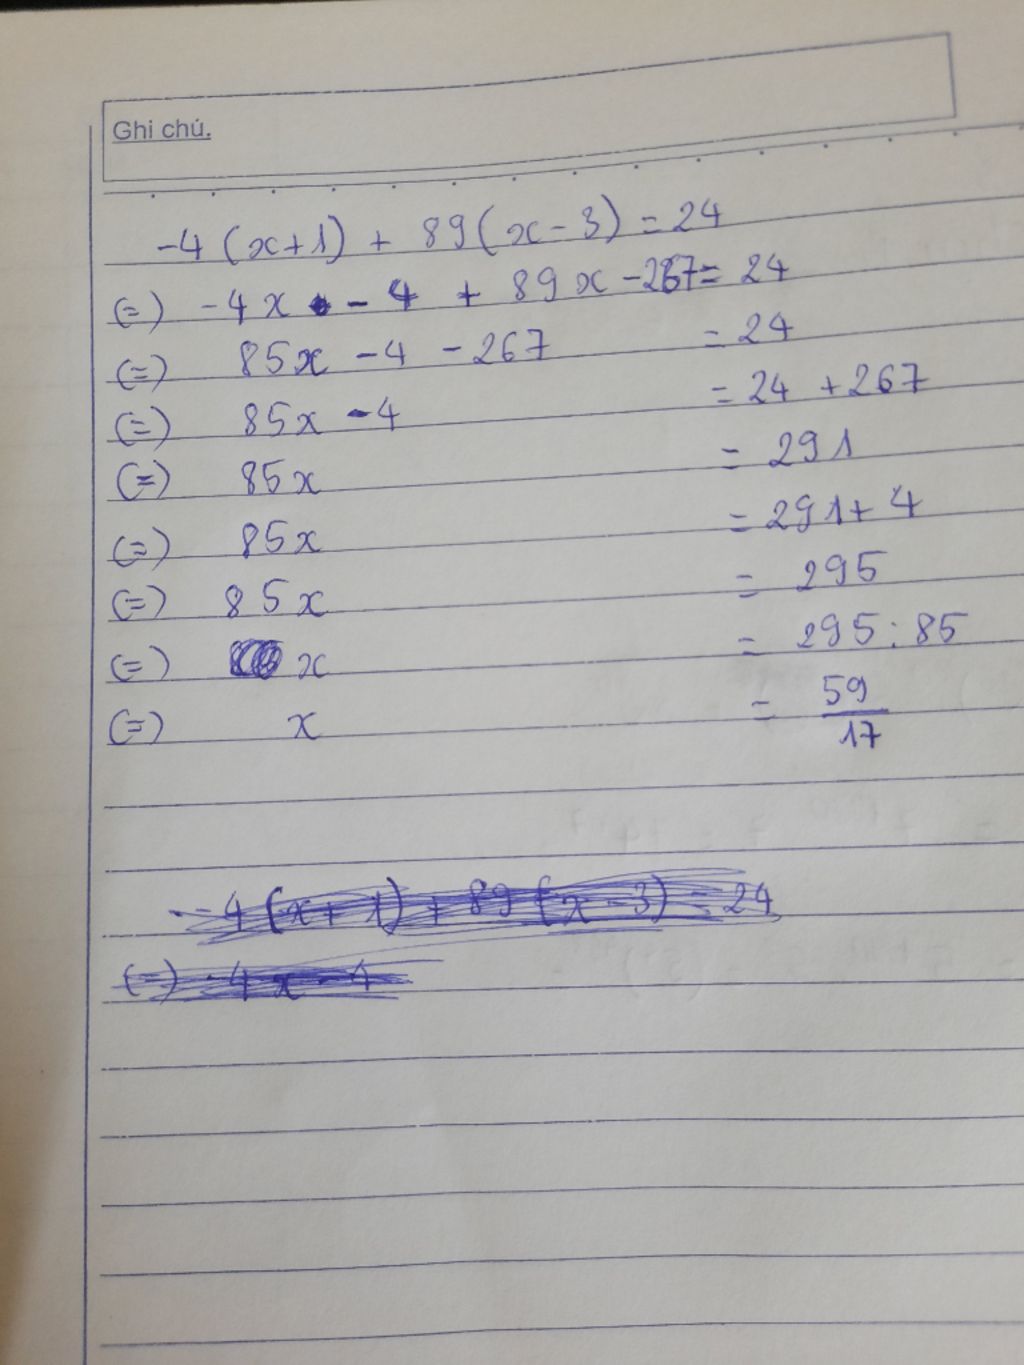 Ghi chú.
-4 (x+1) + 89(x-3) = 24
(=) -4x - 4 + 89x -267= 24
(=) 85x -4 -267 = 24
(=) 85x -4 = 24 +267
(=) 85x = 291
(=) 85x = 291+ 4
(=) 85x = 295
(=) x = 295:85
(=) x = 59/17
-4 (x+1) + 89 (x-3) = 24
(=) -4x - 4